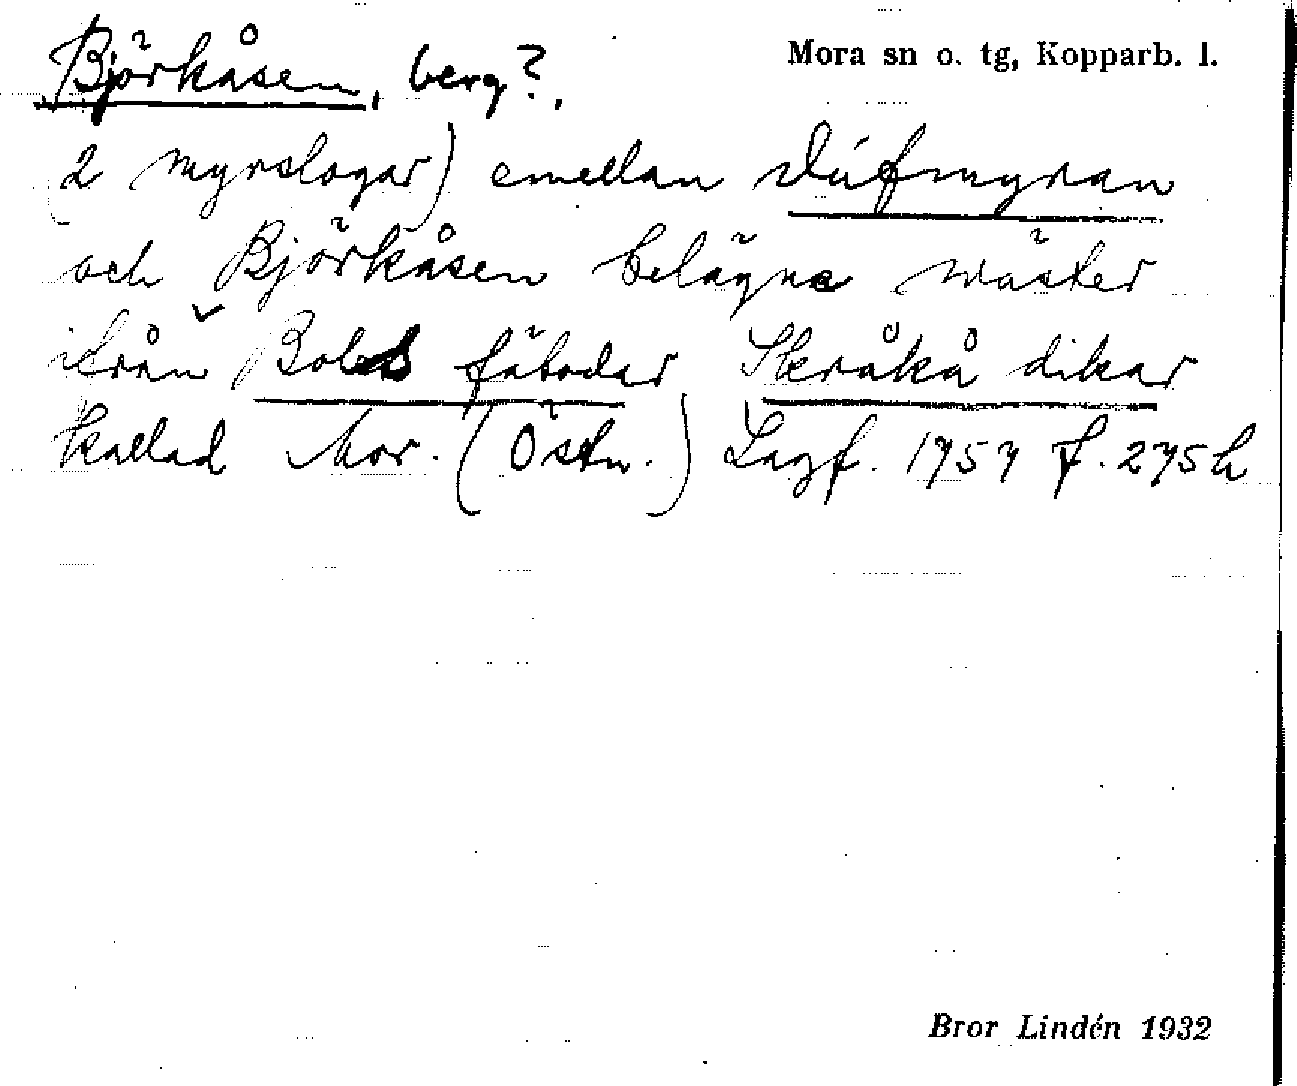 Björkåsen, berg?.
Mora sn o. tg, Kopparb. l.
(2 myrslogar) emellan Dúfmyran
och Björkåsen belägne wäster
ifrån Bolds fäbodar Skråkå dikar
kallad Mor. (Östn.) Lagf. 1757 f. 275 h
Bror Lindén 1932